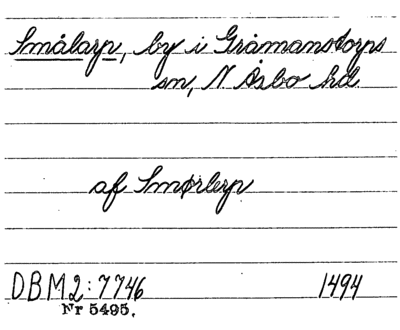 Smålarp, by i Gråmanstorps
sn, N. Åsbo hd.
af Smørlerp
DBM2:7746 1494
Nr 5495.